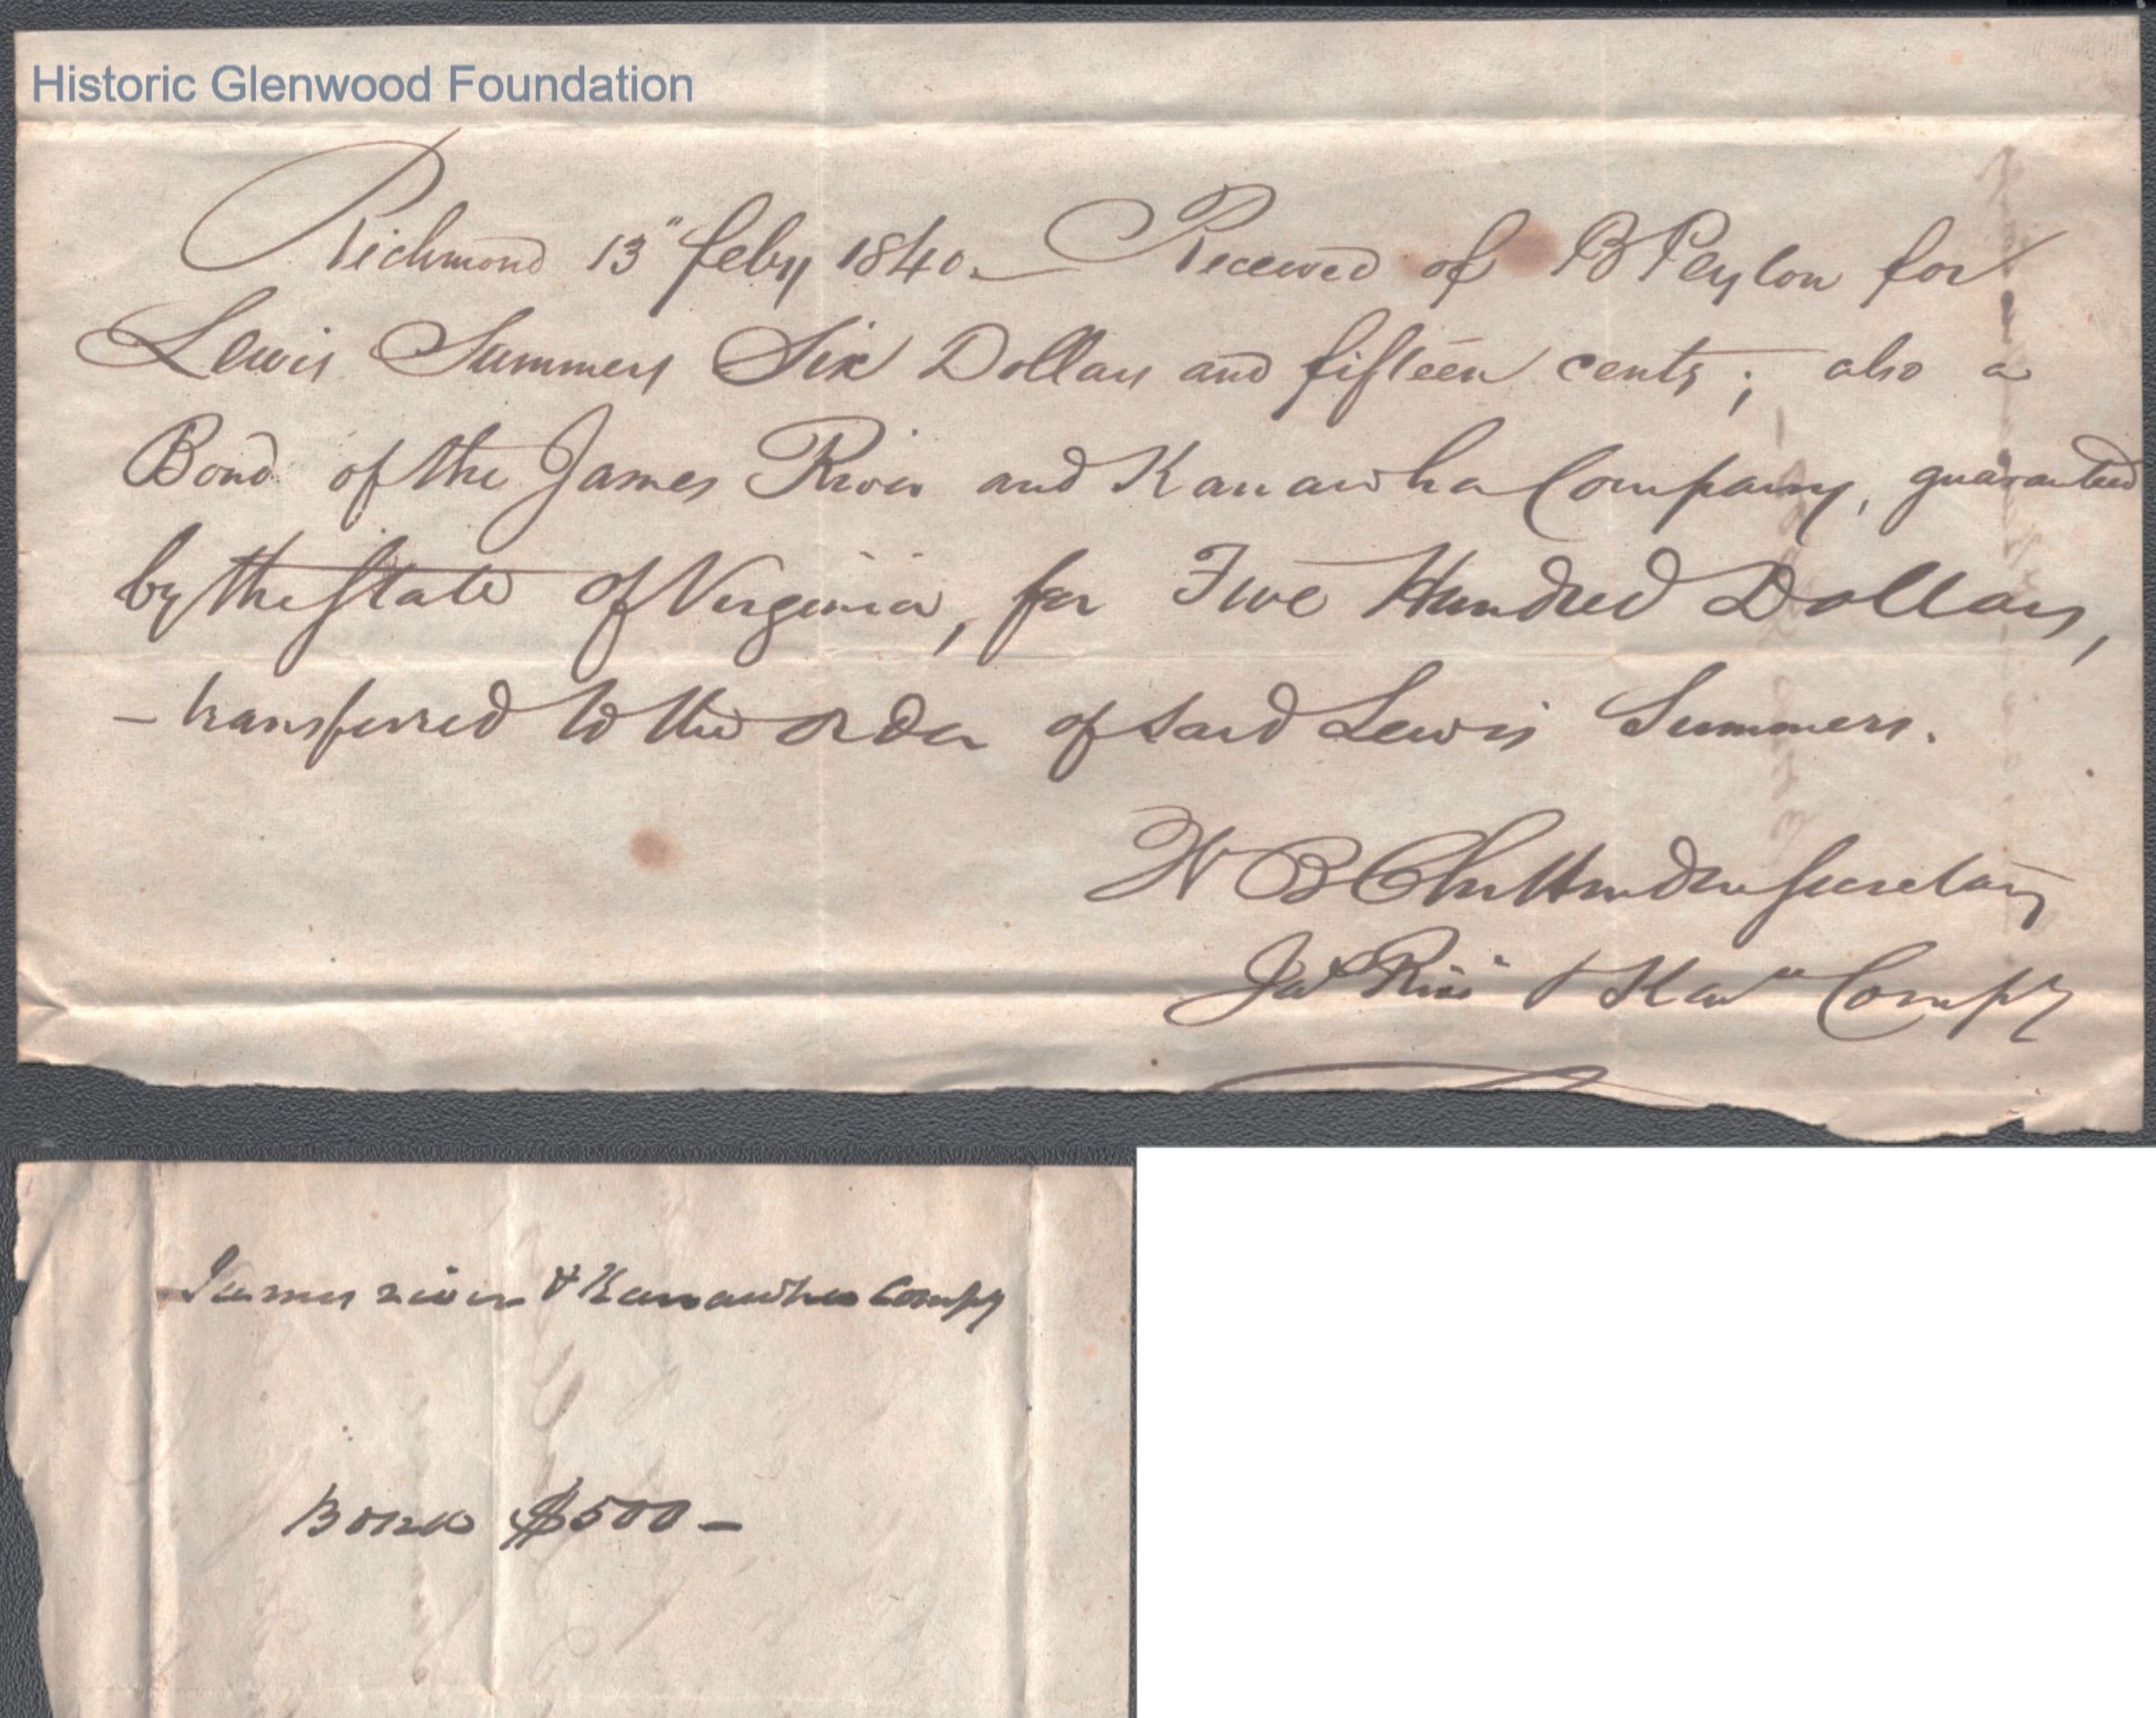 Historic Glenwood Foundation
Richmond 13" feby 1840. Received of B Peyton for
Lewis Summers Six Dollars and fifteen cents; also a
Bond of the James River and Kanawha Company, guaranteed
by the State of Virginia, for Five Hundred Dollars,
– transferred to the order of said Lewis Summers.
W B Chittenden Secretary
Jas Riv & Kawa Compy
James river & Kanawha Compy
Bond $500 –